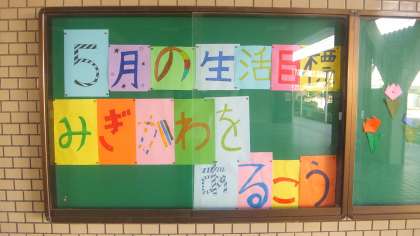 5月の生活目標
みぎがわを
あるこう